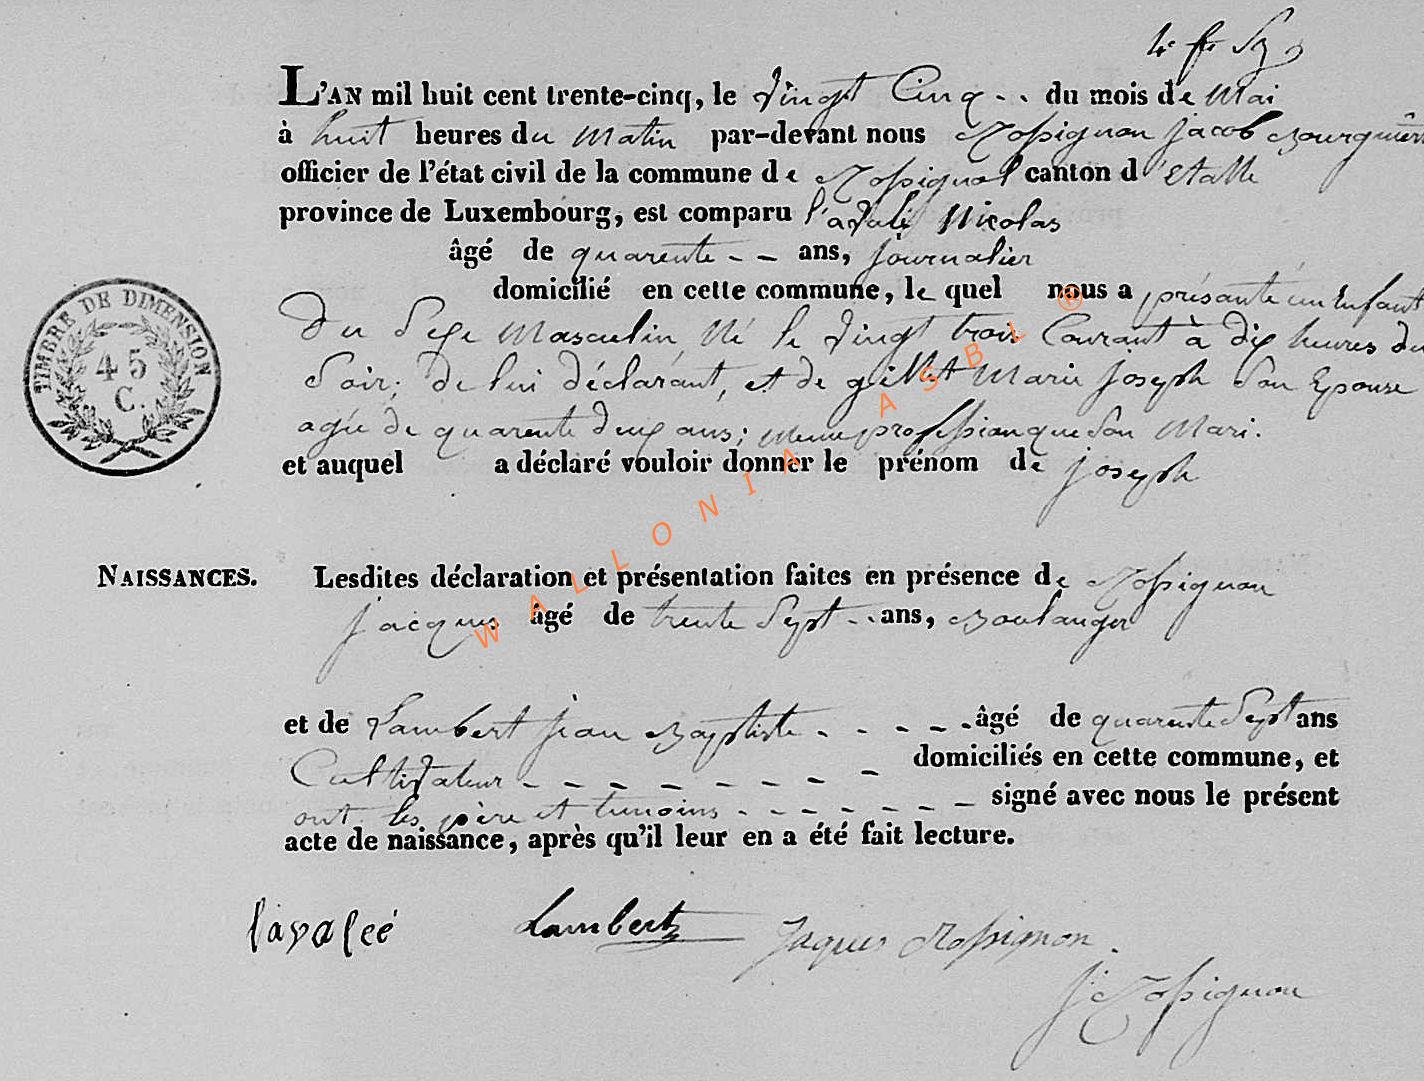 L'AN mil huit cent trente-cinq, le vingt Cinq - - du mois de Mai
à huit heures du Matin par-devant nous Rossignon Jacob Bourgmestre
officier de l'état civil de la commune de Rossignol canton d'Etalle
province de Luxembourg, est comparu l'avalé Nicolas
âgé de quarente - - ans, journalier
domicilié en cette commune, le quel nous a présanté un Enfant
Du Sexe Masculin, Né le vingt trois Courant à dix heures du
Soir; de lui déclarant, et de gillet Marie Joseph Son Epouse
agée de quarente deux ans; meme profession que Son Mari.
et auquel a déclaré vouloir donner le prénom de joseph
TIMBRE DE DIMENSION
45
C.
NAISSANCES. Lesdites déclaration et présentation faites en présence de Rossignon
jacques âgé de trente Sept - - ans, Boulanger
et de Lambert jean Baptiste - - - - - âgé de quarente Sept ans
Cultivateur - - - - - - - - - domiciliés en cette commune, et
ont les père et temoins - - - - - - - signé avec nous le présent
acte de naissance, après qu'il leur en a été fait lecture.
lavaleé Lambert Jaques Rossignon.
J Rossignon
WALLONIA ASBL ®